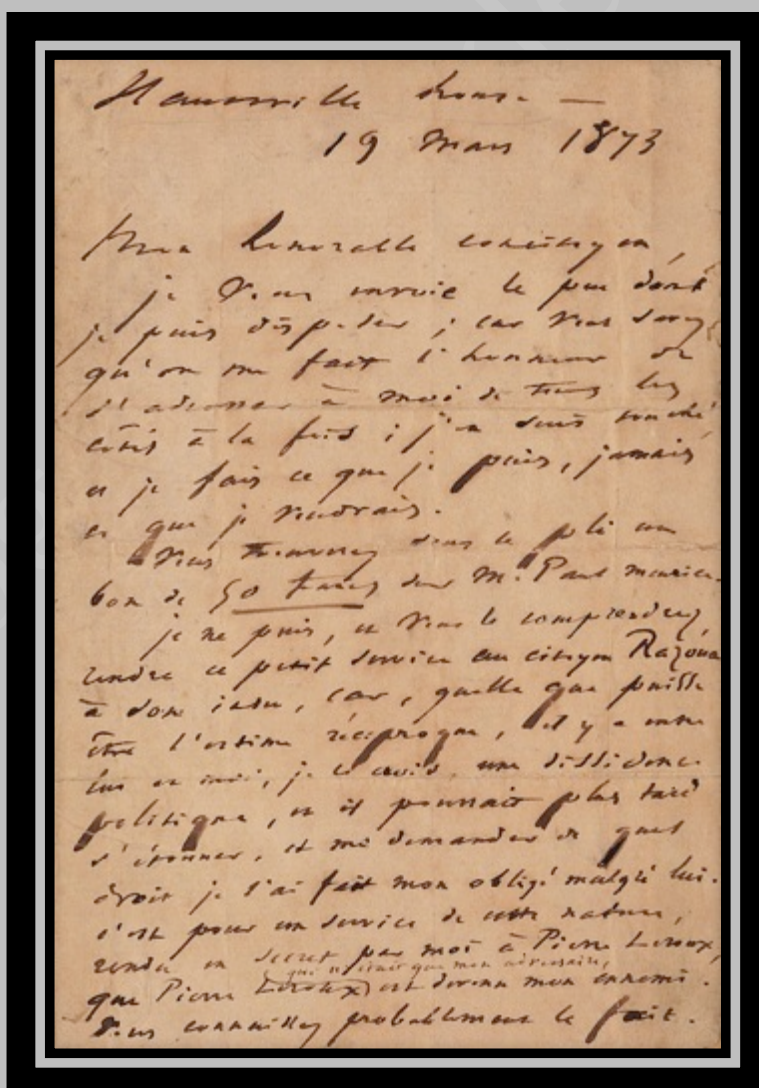 Hauteville house —
19 Mars 1873
Mon honorable concitoyen,
je vous envoie le peu dont
je puis disposer ; car vous savez
qu'on me fait l'honneur de
s'adresser à moi de tous les
côtés à la fois ; j'en suis touché,
et je fais ce que je puis, jamais
ce que je voudrais.
Vous trouverez sous ce pli un
bon de 50 francs sur M. Paul Meurice.
je ne puis, et vous le comprendrez,
rendre ce petit service au citoyen Razoua
à son insu, car, quelle que puisse
être l'estime réciproque, il y a entre
lui et moi, je le crois, une dissidence
politique, et il pourrait plus tard
s'étonner, et me demander de quel
droit je l'ai fait mon obligé malgré lui.
c'est pour un service de cette nature,
rendu en secret par moi à Pierre Leroux,
qui n'était que mon adversaire,
que Pierre Leroux est devenu mon ennemi.
Vous connaissez probablement le fait.